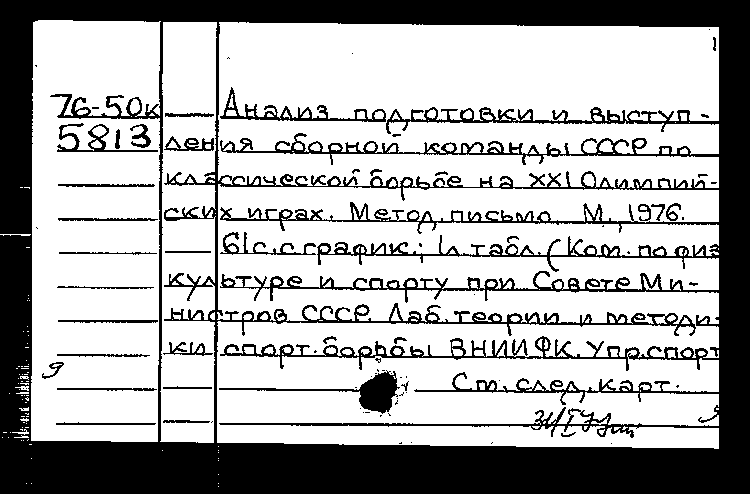 1
76-50к Анализ подготовки и выступ-
5813 ления сборной команды СССР по
классической борьбе на XXI Олимпий-
ских играх. Метод. письмо М., 1976.
61с. с график.; 1л. табл. (Ком. по физ
культуре и спорту при Совете Ми-
нистров СССР. Лаб. теории и методи-
ки спорт. борьбы ВНИИФК. Упр. спорт
См. след. карт.